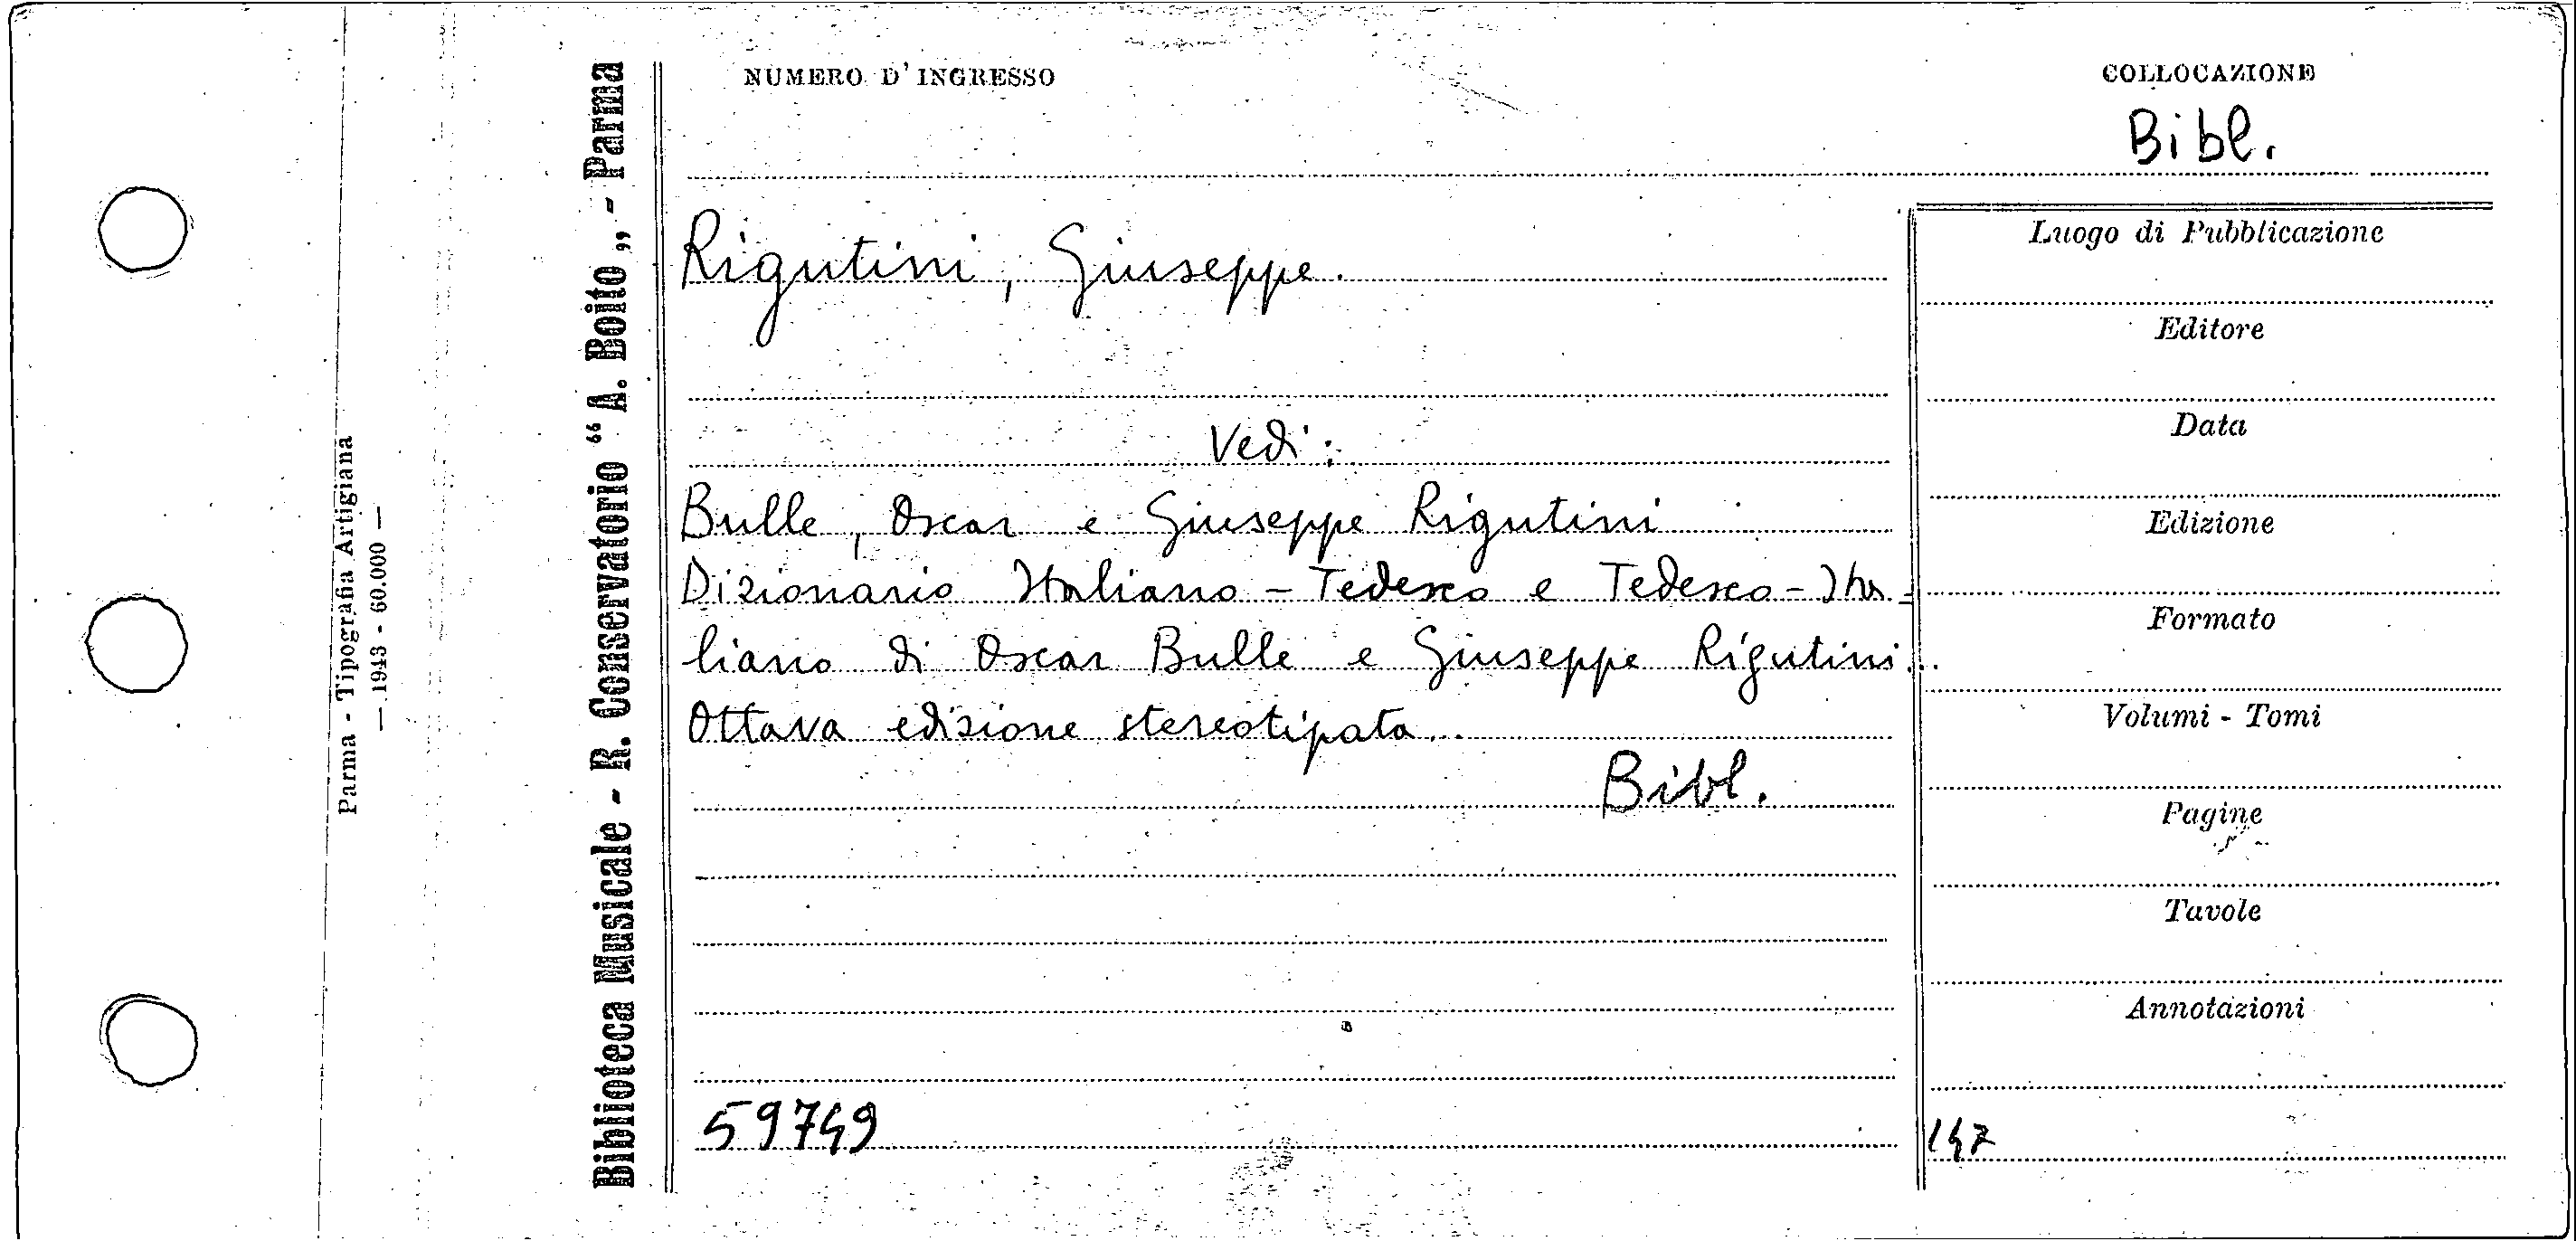 NUMERO D'INGRESSO
COLLOCAZIONE
Bibl.
Rigutini, Giuseppe.
Vedi:
Bulle, Oscar e Giuseppe Rigutini
Dizionario Italiano - Tedesco e Tedesco - Ita-
liano di Oscar Bulle e Giuseppe Rigutini...
Ottava edizione stereotipata...
Bibl.
59749
Luogo di Pubblicazione
Editore
Data
Edizione
Formato
Volumi - Tomi
Pagine
Tavole
Annotazioni
147
Biblioteca Musicale - R. Conservatorio “A. Boito„ - Parma
Parma - Tipografia Artigiana
— 1943 - 60.000 —